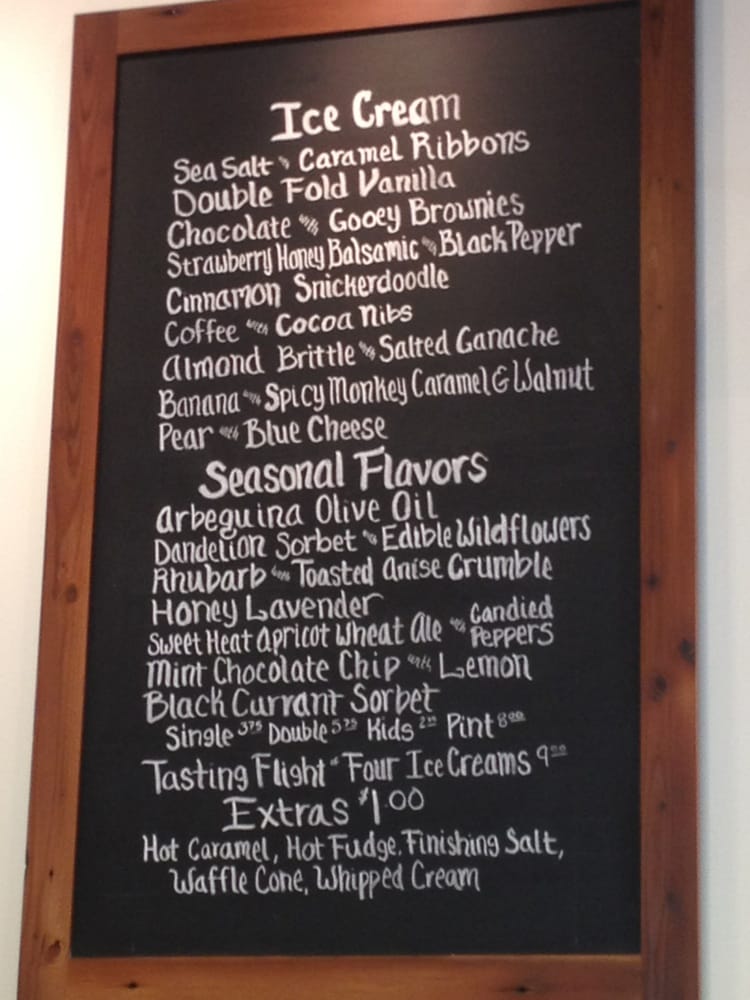 Ice Cream
Sea Salt with Caramel Ribbons
Double Fold Vanilla
Chocolate with Gooey Brownies
Strawberry Honey Balsamic with Black Pepper
Cinnamon Snickerdoodle
Coffee with Cocoa Nibs
Almond Brittle with Salted Ganache
Banana with Spicy Monkey Caramel & Walnut
Pear with Blue Cheese
Seasonal Flavors
Arbequina Olive Oil
Dandelion Sorbet with Edible Wildflowers
Rhubarb with Toasted Anise Crumble
Honey Lavender
Sweet Heat Apricot Wheat Ale with Candied Peppers
Mint Chocolate Chip with Lemon
Black Currant Sorbet
Single 3.75 Double 5.75 Kids Pint 8.00
Tasting Flight Four Ice Creams 9.00
Extras $1.00
Hot Caramel, Hot Fudge, Finishing Salt,
Waffle Cone, Whipped Cream